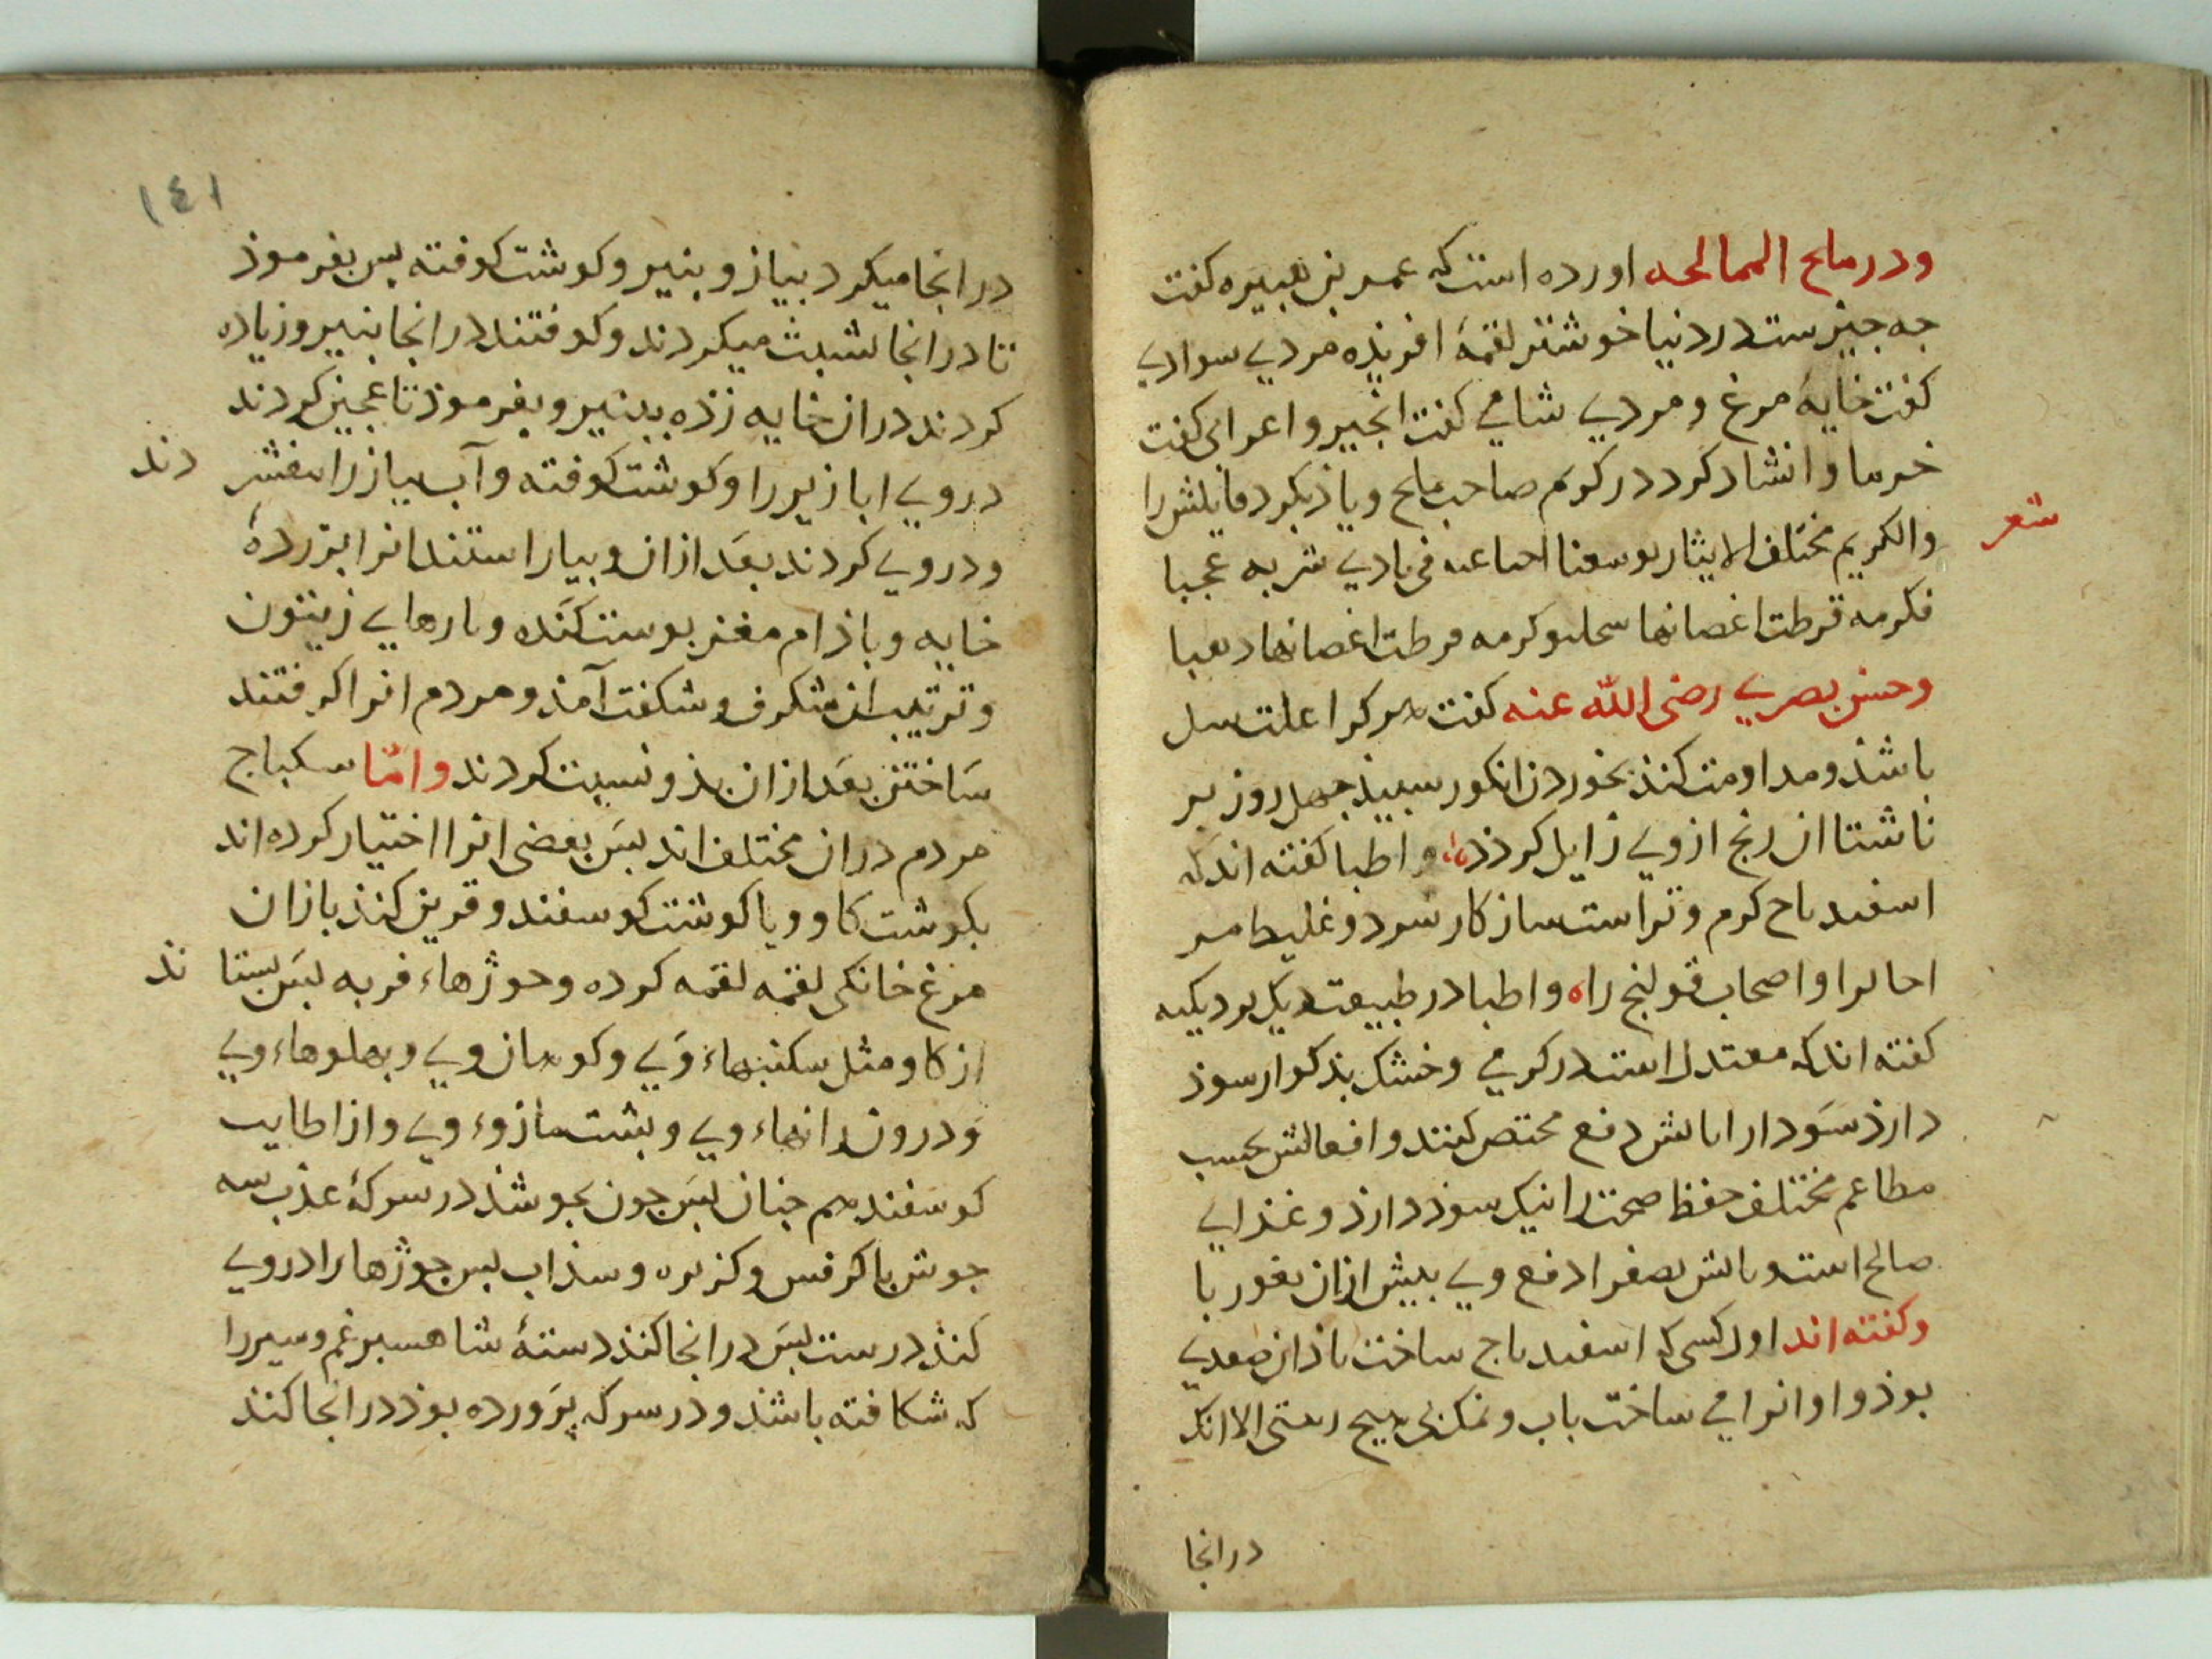 ودر ملح الممالحه اورده است که عمر بن هبیره کفت
جه جیزست در دنیا خوشتر لقمهٔ افریذه مردی سوادی
کفت خایهٔ مرغ و مردی شامی کفت انجیر و اعرابی کفت
خرما و انشاد کرد در کوم صاحب ملح و یاذ بکرد قایلش را
شعر
والکریم مختلف الایثار یوسعنا فی بادی شربه عجبا
فکرمه قرطت اغصانها وکرمه قرطت اغصانها
وحسن بصری رضی الله عنه کفت هر کرا علت سل
باشذ و مداومت کنذ بخوردن انکور سبیذ جهل روز بر
ناشتا ان رنج از وی زایل کردذ و اطبا کفته اند که
اسفیدباج کرم و تر است سازکار سرد و غلیظ
را و اصحاب قولنج را و اطبا در طبیعت دیک بر دیکیه
کفته اند که معتدل است در کرمی و خشک بذکوار سوذ
دارذ سودا را دفع مختص کنند و افعالش بحسب
مطاعم مختلف حفظ صحت را نیک سوذ دارذ و غذایی
صالح است و صفرا دفع وی بیش ازان بغوربا
وکفته اند اول کسی که اسفیدباج ساخت باذان صعدی
بوذ و او انرا می ساخت باب و نمک بی هیج الا انک
در انجا
١٤١
در انجا میکرد بیاز و بنیر و کوشت کوفته بس بفرموذ
تا در انجا شبث میکردند و کوفتند در انجا بنیر و زیاده
کردند دران خایه زذه ببنیر و بفرموذ تا عجین کردند
در وی ابازیر را و کوشت کوفته و آب بیاز را بفشر دند
ودر وی کردند بعد ازان و بیاراستند انرا بزردهٔ
خایه و باذام مغز بوست کنده و بارهایی زیتون
و ترتیب ان شکرف و شکفت آمذ و مردم انرا کرفتند
ساختن بعد ازان بذو نسبت کردند وامّا سکباج
مردم دران مختلف اند بس بعضی انرا اختیار کرده اند
بکوشت کاو و یا کوشت کوسفند و قرین کنذ بازان
مرغ خانکی لقمه لقمه کرده و جوژهاء فربه بس بستا نذ
از کاو مثل سکنبهاء وی و کوهان وی و بهلوهاء وی
و درون رانهاء وی و بشت مازوء وی و از اطایب
کوسفند هم جنان بس جون بجوشذ در سرکهٔ عذب سه
جوش با کرفس و کزبره و سذاب بس جوژها را در وی
کنذ درست بس در انجا کنذ دستهٔ شاهسبرغم و سیر را
که شکافته باشذ و در سرکه پرورده بوذ در انجا کنذ